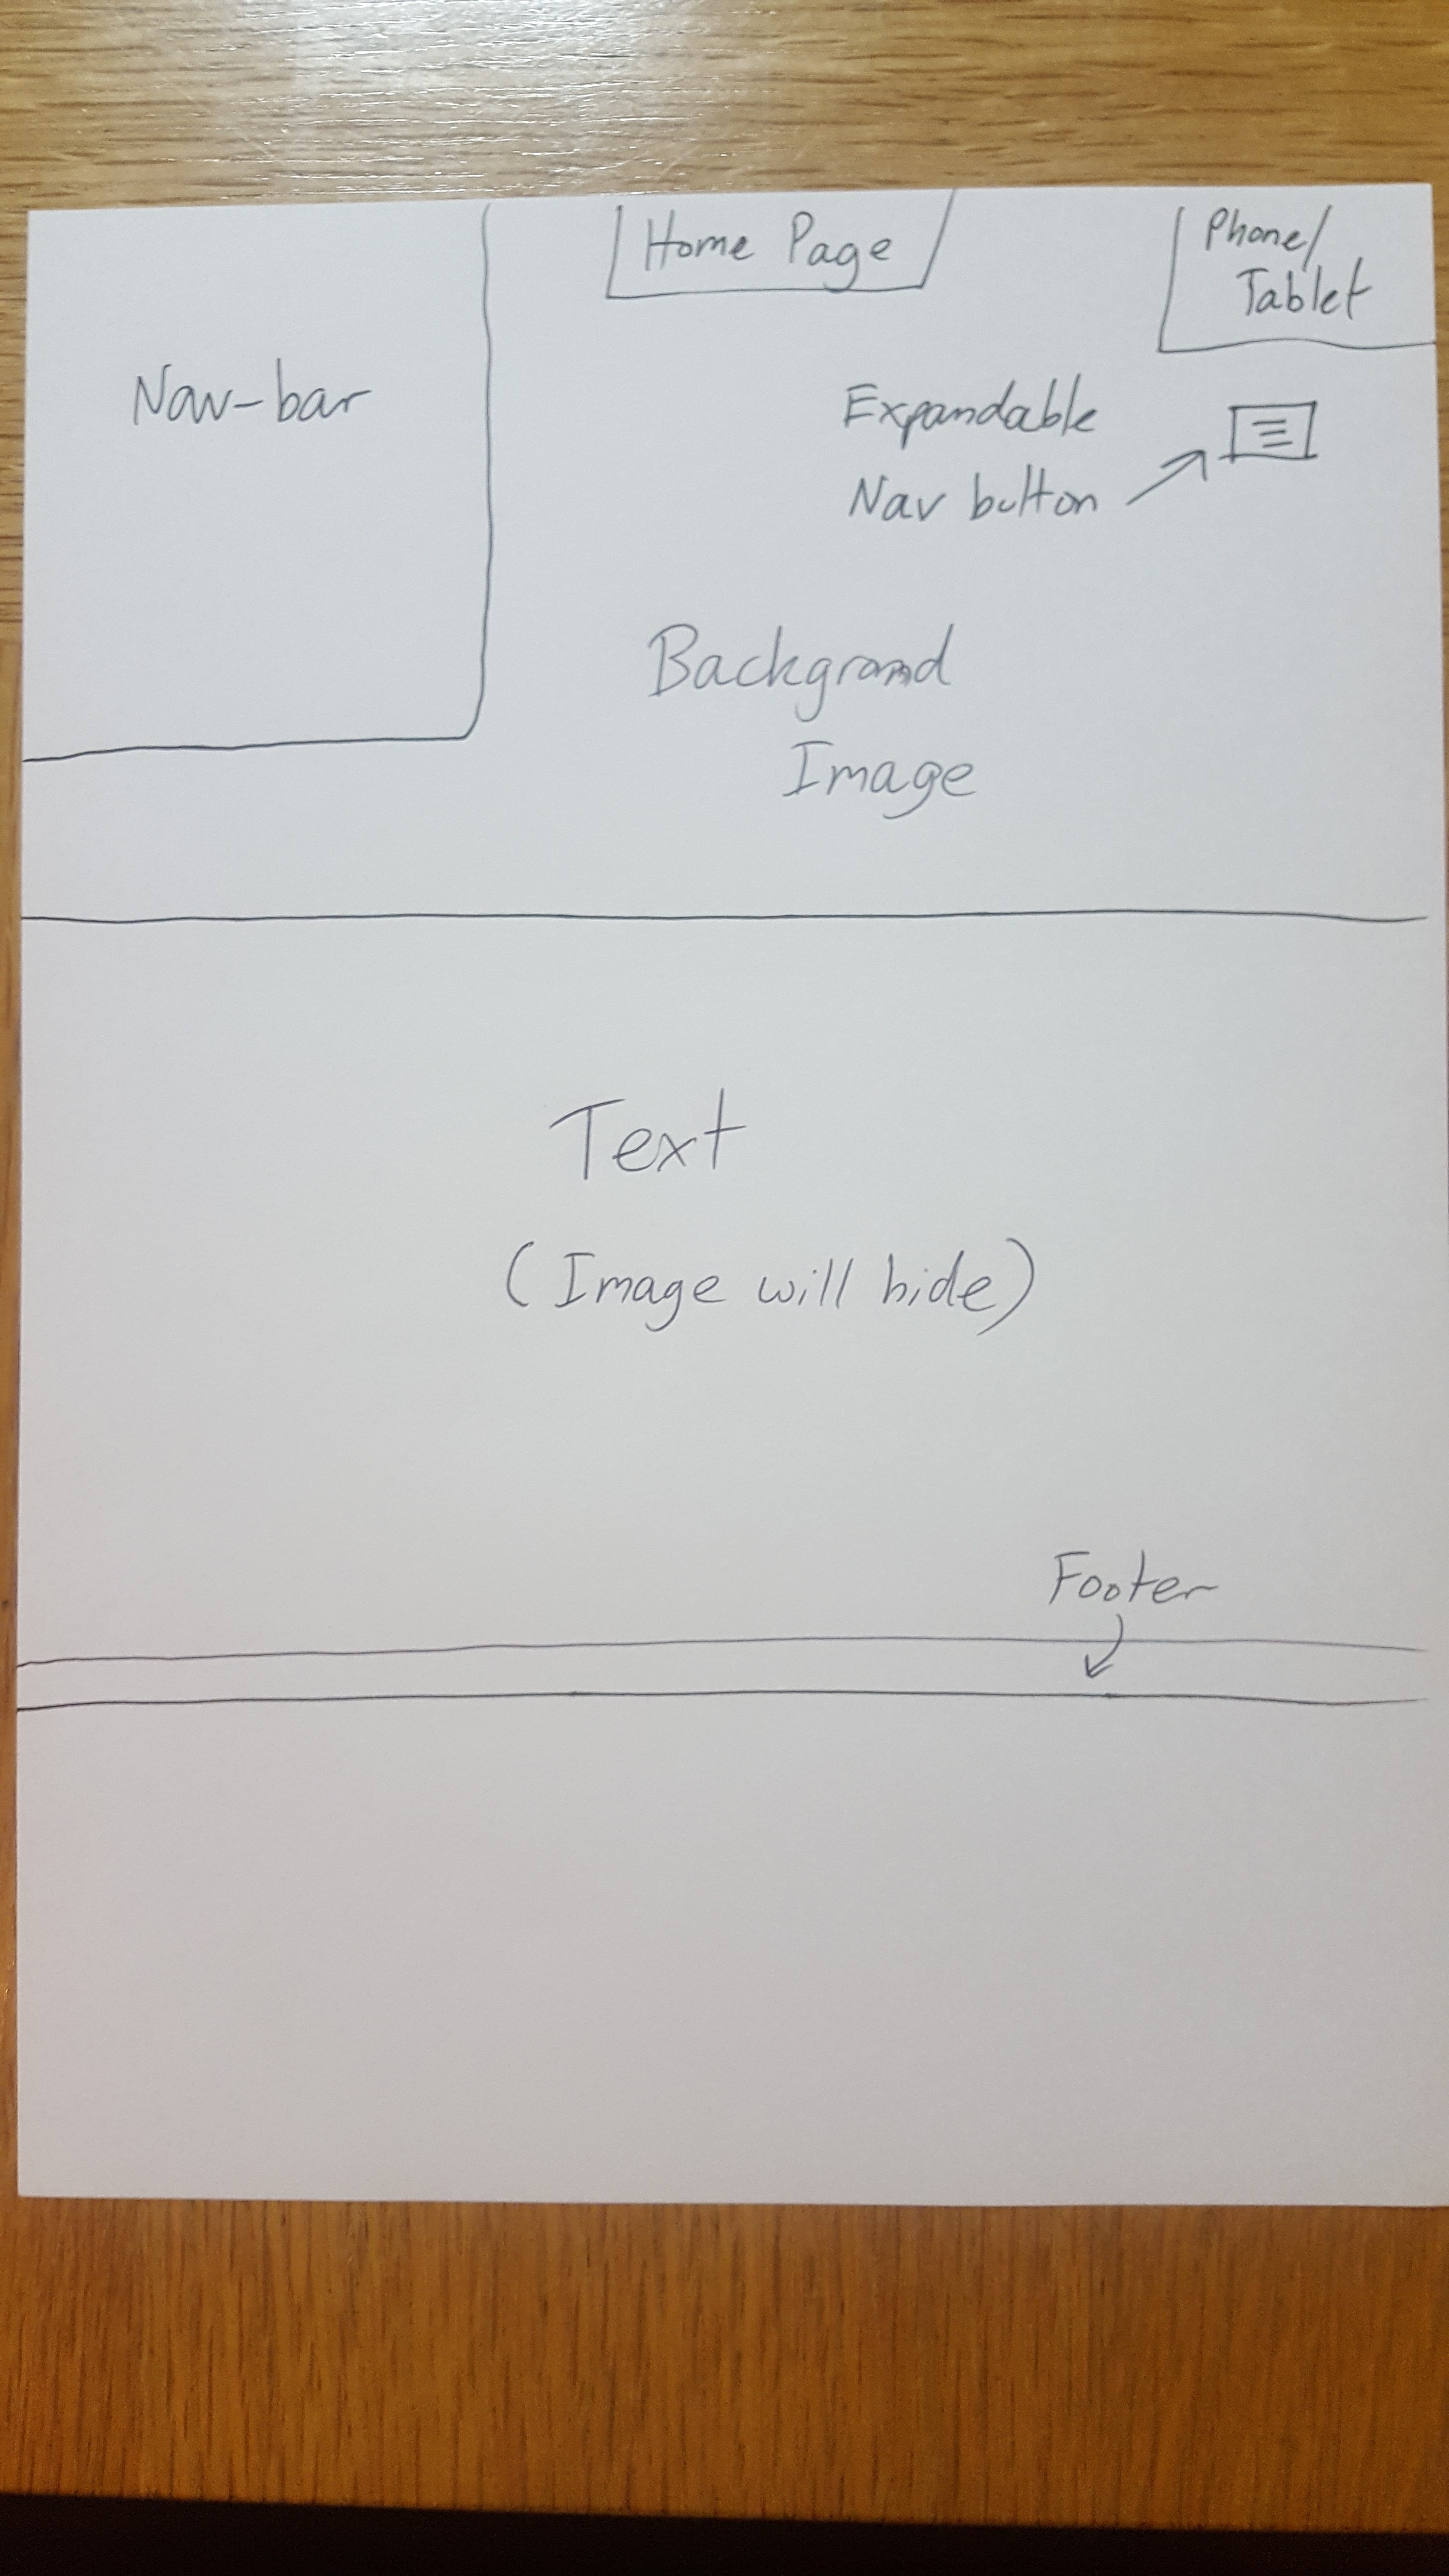 Home Page
Phone/
Tablet
Nav-bar
Expandable
Nav button
Background
Image
Text
(Image will hide)
Footer